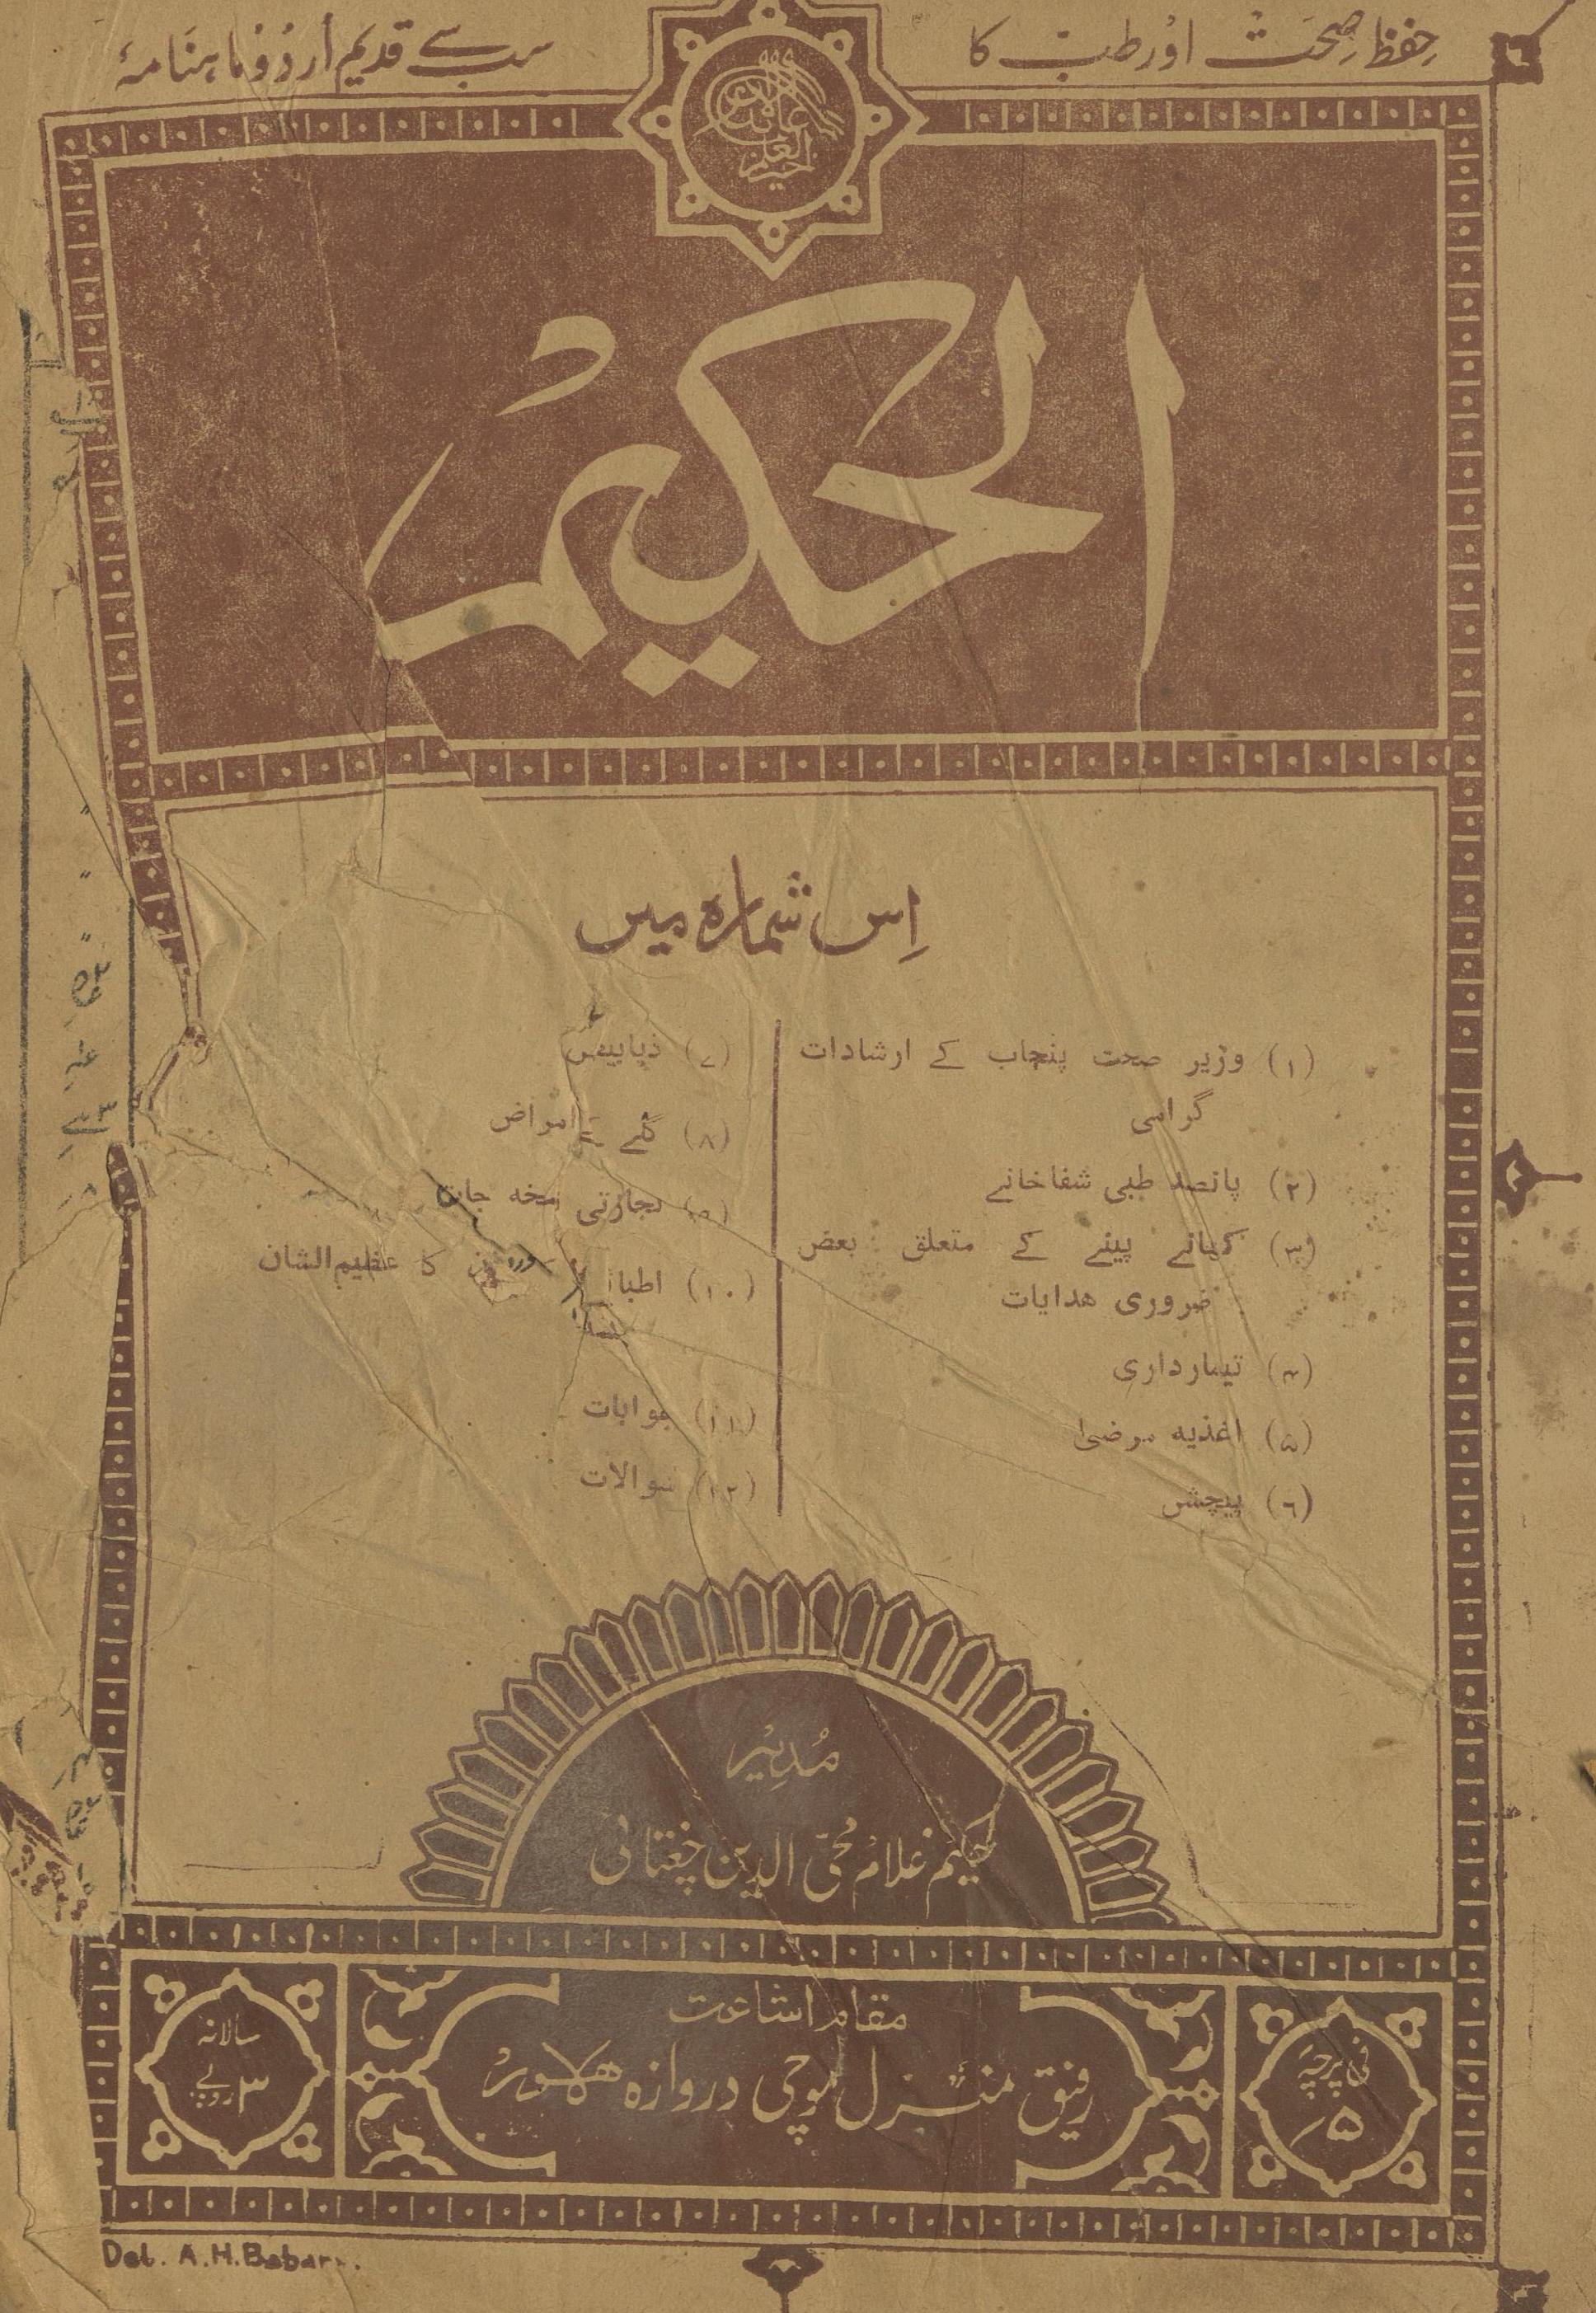 حفظِ صحت اور طب کا سب سے قدیم اُردو ماہنامہ
الحکیم
اِس شمارہ میں
(۱) وزیر صحت پنجاب کے ارشادات
گرامی
(۲) پانصد طبی شفاخانے
(۳) کھانے پینے کے متعلق بعض
ضروری ھدایات
(۴) تیمارداری
(۵) اغذیہ مرضیٰ
(۶) پیچش
(۷) ذیابیطس
(۸) گلے کے امراض
(۹) تجارتی نسخہ جات
(۱۰) اطبا کا عظیم الشان
(۱۱) جوابات
(۱۲) سوالات
مُدِیْر
حکیم غلام محی الدین چغتائی
مقام اشاعت
رفیق منزل موچی دروازہ لاھور
فی پرچہ
۵؍
سالانہ
۳ روپے
Del. A.H.Babar